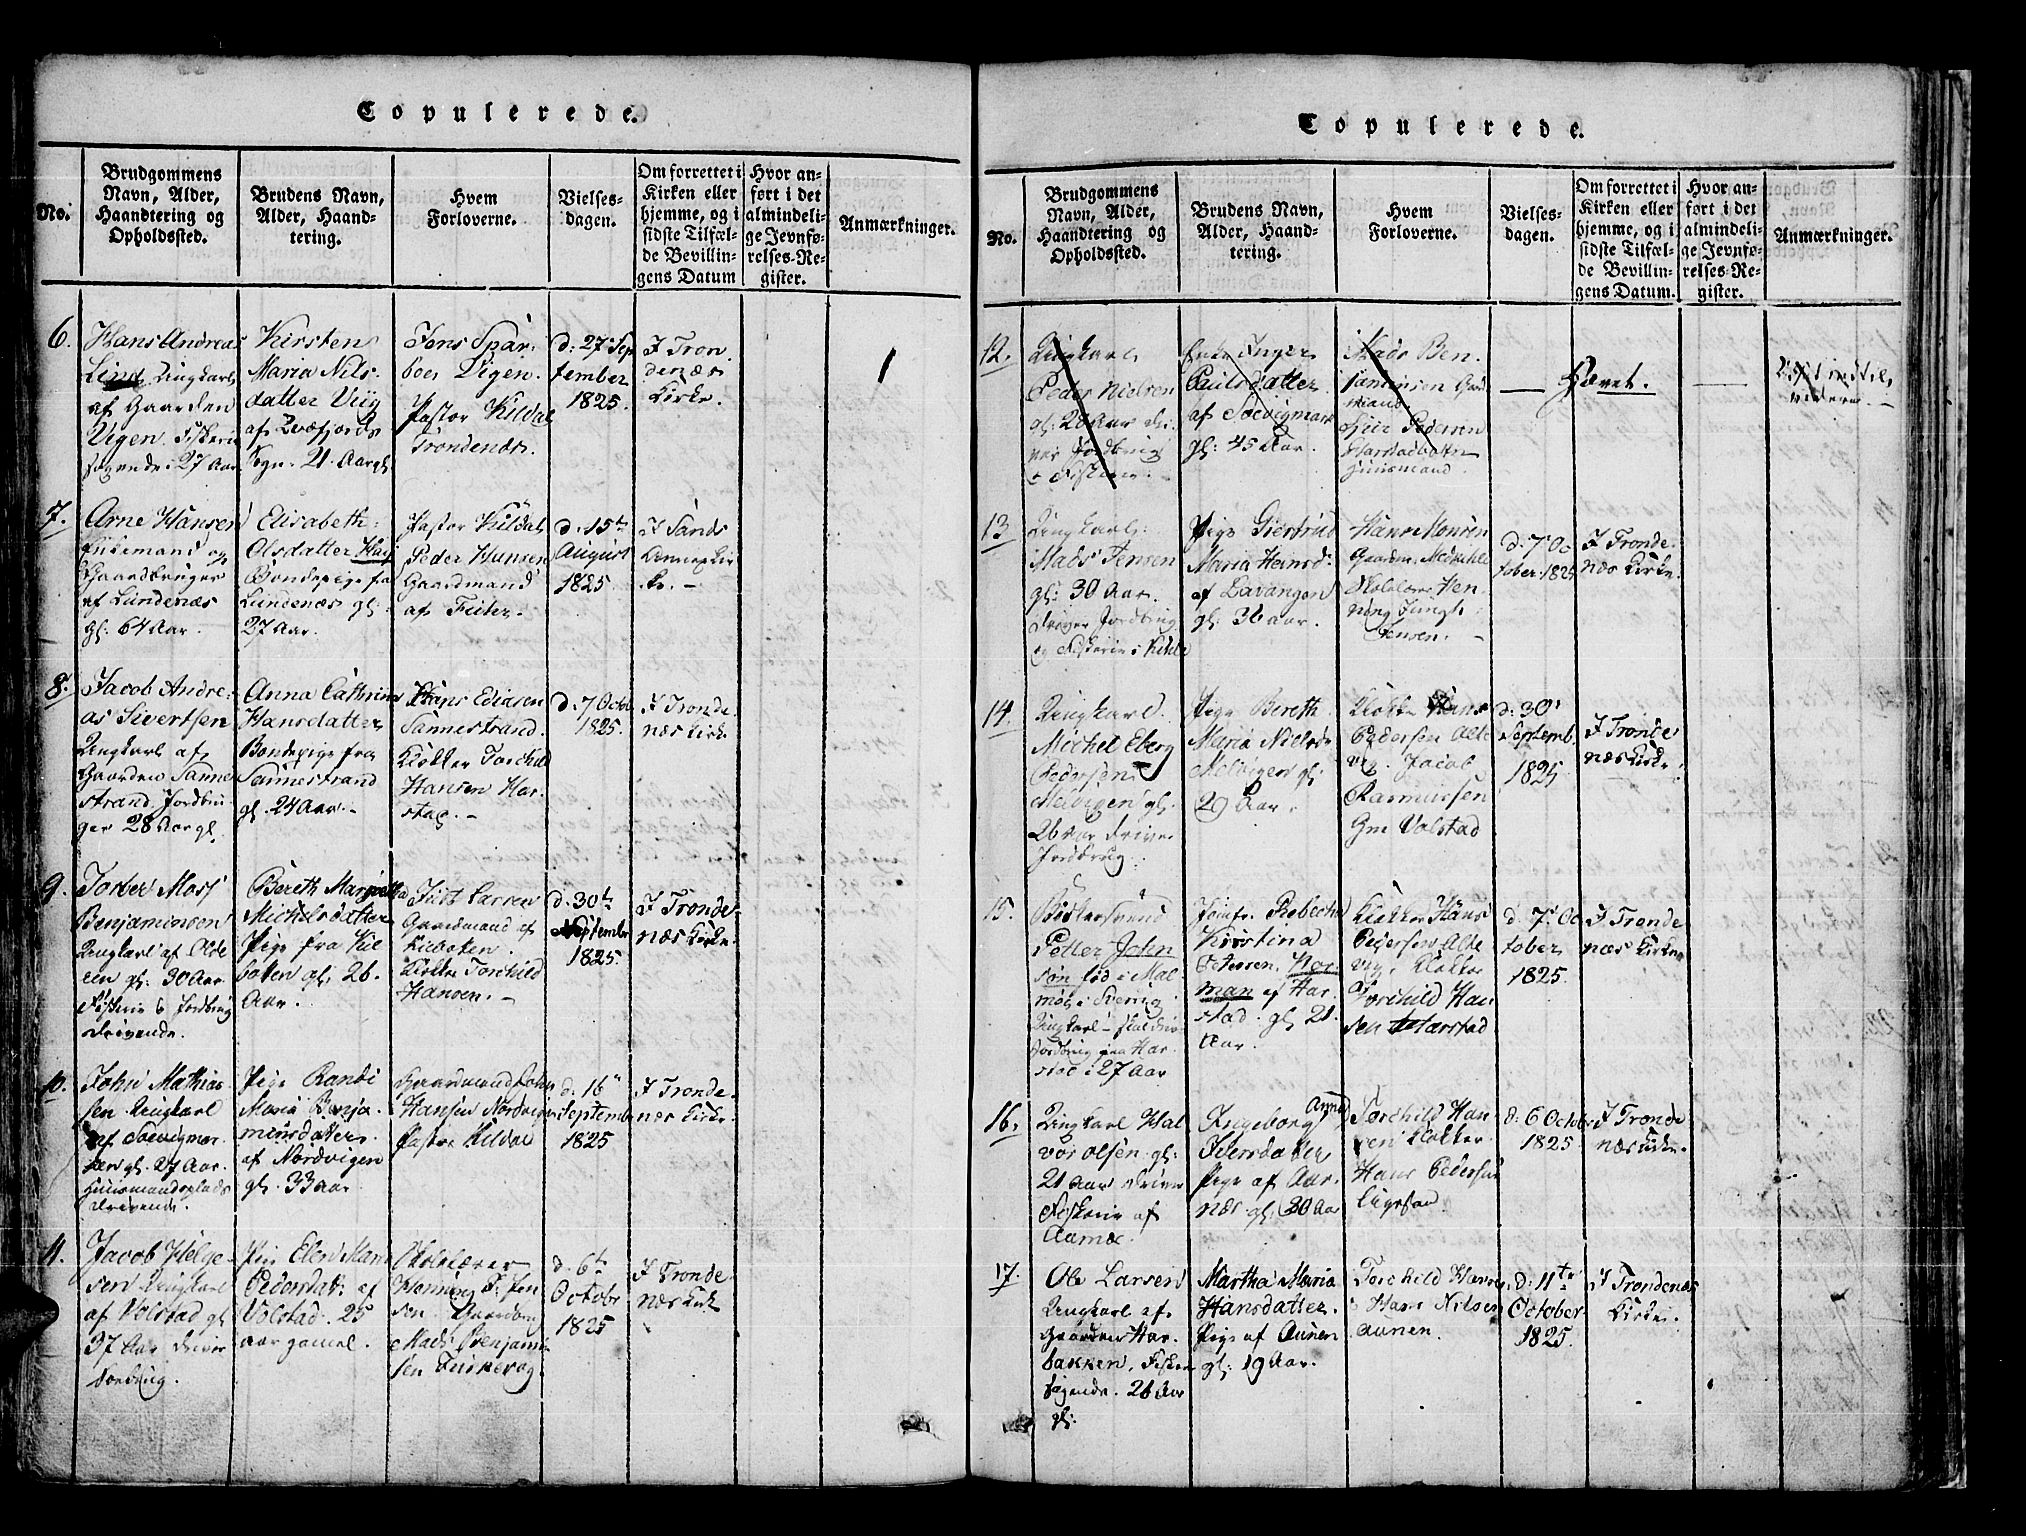 Copulerede.
No.
Brudgommens
Navn, Alder,
Haandtering og
Opholdssted.
Brudens Navn,
Alder, Haand-
tering.
Hvem
Forloverne.
Vielses-
dagen.
Om forrettet i
Kirken eller
hjemme, og i
sidste Tilfæl-
de Bevillin-
gens Datum
Hvor an-
ført i det
almindeli-
ge Jevnfø-
relses-Re-
gister.
Anmærkninger.
6.
Hans Andreas
Lind Ungkarl
af Gaarden
Vigen. Fiskerie
søgende: 27 Aar
Kirsten
Maria Nils-
datter
af Qvæfjords
Sogn: 21 Aar gl
Jens
boes Vigen.
Pastor Kildal
Trondenæs.
d: 27 Sep
tember
1825.
I Tron
denæs
Kirke.
7.
Arne Hansen
Enkemand og
Gaardbruger
af Lundenæs
gl: 64 Aar.
Elisabeth
Olsdatter
Bondepige fra
Lundenæs gl:
27 Aar.
Pastor Kildal
Peder Hansen
Gaardmand
af
d: 15te
August
1825
I Sands
Annex Kir
ke. –
8.
Jacob Andre-
as Sivertsen
Ungkarl af
Gaarden Sanne
strand. Jordbru
ger 28 Aar gl.
Anna Cathrina
Hansdatter
Bondepige fra
Sannestrand
gl. 24 Aar. –
Hans Ediasen
Sannestrand.
Klokker Torchild
Hansen Har-
stad. –
d: 7 Octob
1825.
I Tronde-
næs Kirke
9.
Torber Mass
Benjaminsen
Ungkarl af
gl: 30 Aar
Fiskerie & Jordbrug
drivende.
Bereth Margretha
Michelsdatter
Pige fra Kil
botten gl: 26.
Aar.
Just Larsen
Gaardmand af
Kilbotten.
Klokker Torchild
Hansen. –
d. 30te
September
1825.
I Tronde-
næs Kirke.
10.
John Mathias
sen Ungkarl
af Soevigmar
ken gl. 27 Aar.
Huusmandsplads
drivende.
Pige Randi
Maria Benja-
minsdatter
af Nordvigen
gl. 33 Aar
Gaardmand John
Hansen Nordvigen
Pastor Kildal
d: 16
September
1825
I Tronde-
næs Kirke.
11.
Jacob Helge-
sen Ungkarl
af Volstad gl
37 Aar driver
Jordbrug.
Pige Elen Mari
Pedersdatr af
Volstad. 25
aar gamel.
Skolelærer
Henning J. Jen
sen. Gaardmd
Mads Benjamin
sen
d. 6te
Octobr
1825
I Tronde-
næs Kirke
Copulerede.
No.
Brudgommens
Navn, Alder,
Haandtering og
Opholdssted.
Brudens Navn,
Alder, Haand-
tering.
Hvem
Forloverne.
Vielses-
dagen.
Om forrettet i
Kirken eller
hjemme, og i
sidste Tilfæl-
de Bevillin-
gens Datum.
Hvor an-
ført i det
almindeli-
ge Jevnfø-
relses-Re-
gister.
Anmærkninger.
12.
Ungkarl
Peder Nielsen
gl: 28 Aar dri-
ver Jordbrug
& Fiskerie. –
Enke Inger
Paulsdatter
af Soevigmark
gl: 45 Aar.
Mads Ben-
jaminsen Gaard
mand
Pedersen
Harstadbotten
Huusmand.
— Hævet. —
13
Ungkarl:
Mads Jensen
gl: 30 Aar.
driver Jordbrug
og Fiskerie i
Pige Giertrud
Maria Hansd.
af Lavangen
gl: 36 Aar.
Hans Monsen
Gaardm.
Skolelærer Hen-
ning Junghl
Jensen. –
d: 7 Oc
tober 1825
I Tronde-
næs Kirke.
14.
Ungkarl.
Michel Eberg
Pedersen
Melvigen gl.
26 Aar driver
Jordbrug.
Pige Bereth
Maria Nielsdr
Melvigen gl:
29 Aar.
Klokker Hans
Pedersen
Jacob
Rasmussen
Gm Volstad
d: 30
Septemb.
1825
I Tronde
næs Kirke.
15.
Petter John
sen fød i Mal-
møe i Sverrig
Ungkarl
Jordbrug paa Har
stad i 27 Aar
Jomfr. Rebecha
Kristina
Petersen. Nor-
man af Har
stad. gl 21.
Aar.
Klokker Hans
Pedersen
Klokker
Torchild Han
sen Harstad
d: 7 Oc
tober
1825
I Tronde
næs Kirke
16.
Ungkarl Hal
vor Olsen gl:
21 Aar driver
Fiskerie af
Ingeborg Anna
Iversdatter
Pige af Aur-
næs gl. 20 Aar
Torchild Han
sen Klokker
Hans Pedersen
d: 6 Octobr
1825
I Tronde
næs Kirke.
17.
Ole Larsen
Ungkarl af
Gaarden Har-
bakken. Fiskerie
søgende. 26 Aar
gl:
Martha Maria
Hansdatter.
Pige af Aunen
gl: 19 Aar.
Torchild Hansen
Hans Nilsen
Aunen.
d: 11te
October
1825
I Trondenæs
Kirke.